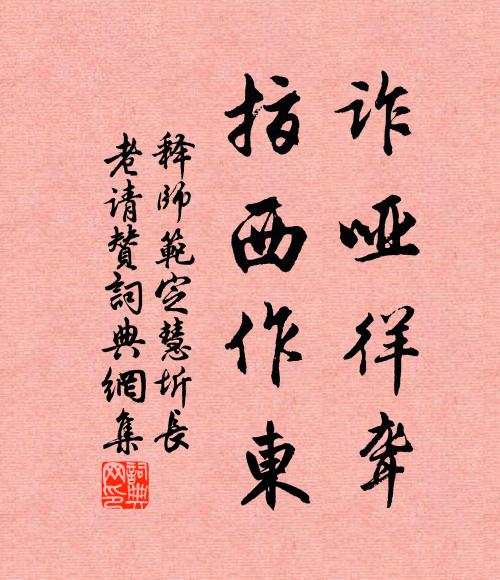 詐啞徉聾
指西作東
釋師範定慧圻長
老請贊詞典網集
詞典网印